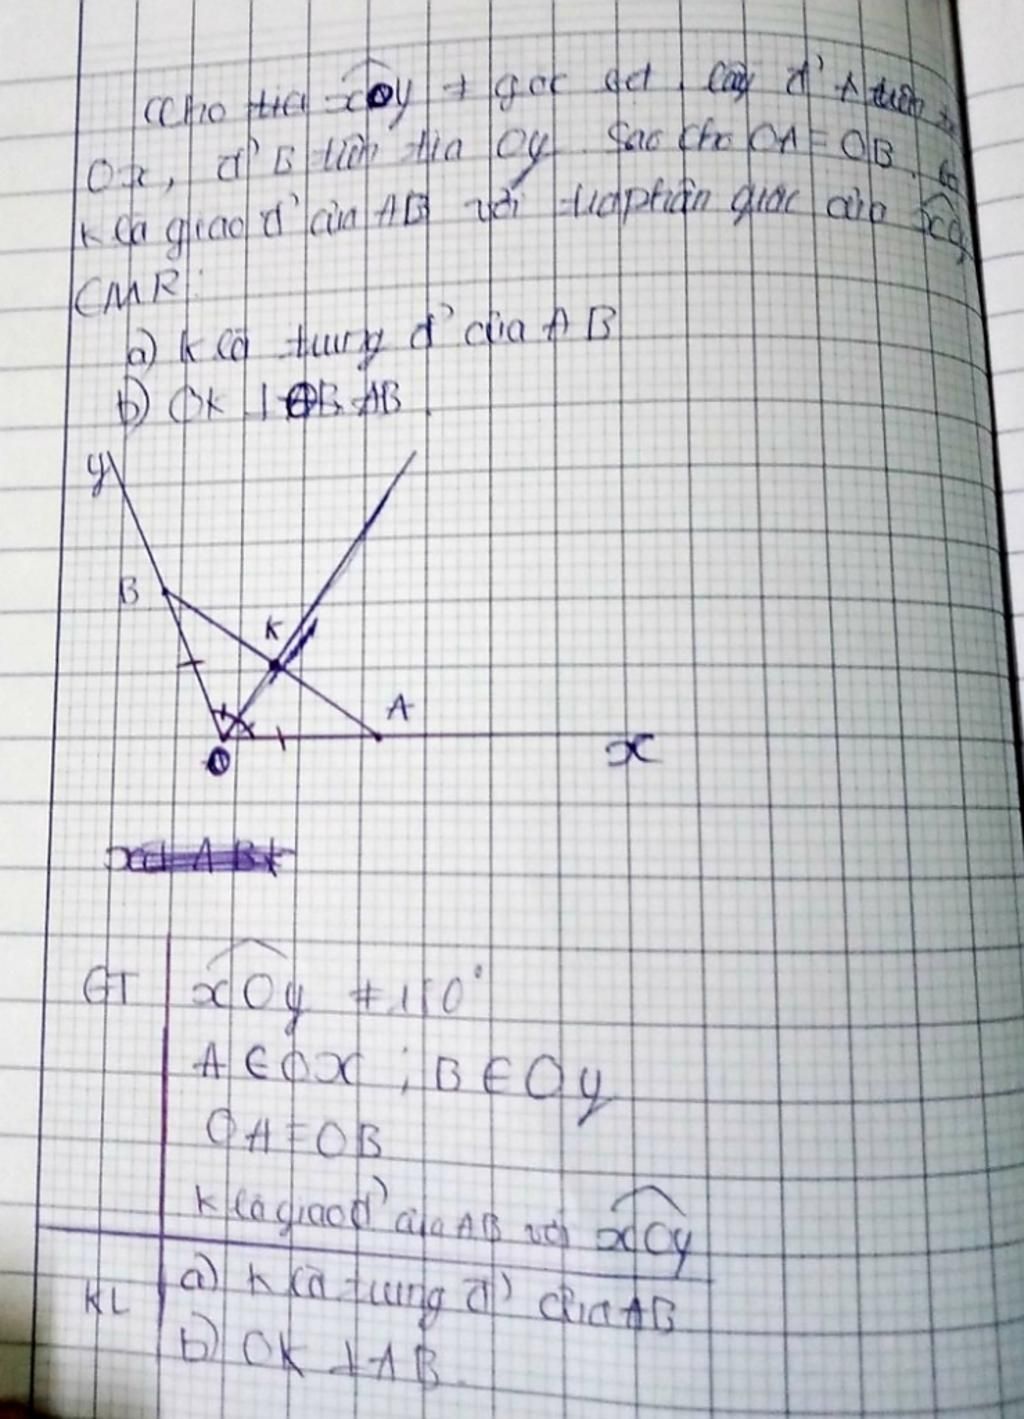 Cho tia xOy ≠ góc bẹt. Lấy đ' A trên
Ox, đ' B trên tia Oy sao cho OA = OB.
K là giao đ' của AB với tia phân giác của xOy
CMR:
a) K là trung đ' của AB
b) OK ⊥ AB
y
B
K
A
O
x
GT xOy ≠ 180°
A ∈ Ox ; B ∈ Oy
OA = OB
K là giao đ' của AB với xOy
KL a) K là trung đ' của AB
b) OK ⊥ AB.